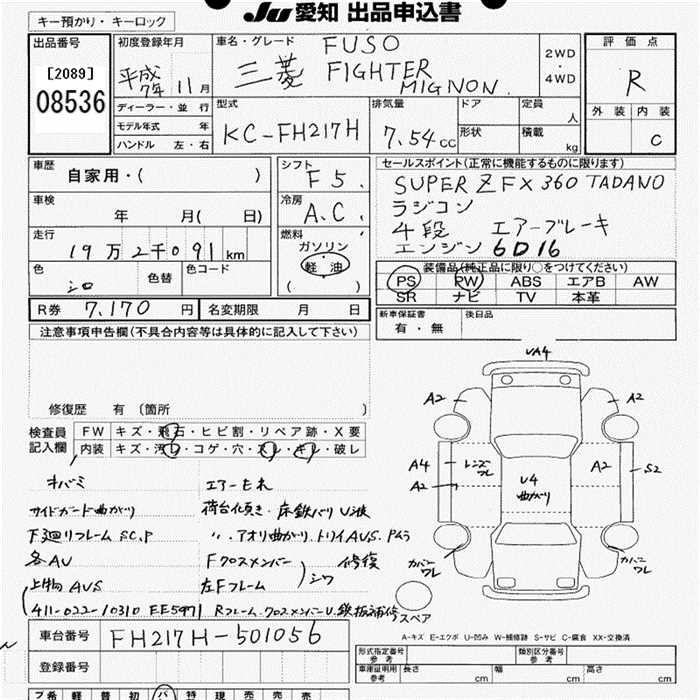 Ju愛知 出品申込書
キー預かり・キーロック
出品番号
[2089]
08536
初度登録年月
平成7年 11月
ディーラー・並行
モデル年式 年
ハンドル 左・右
車名・グレード
三菱 FUSO
FIGHTER
MIGNON
2WD
・
4WD
評価点
R
外装 内装
C
型式
KC-FH217H
排気量
7.54cc
ドア
形状
定員
人
積載
kg
車歴
自家用・( )
車検
年 月( 日)
走行
19万2千091km
色
シロ
色替
色コード
シフト
F5.
冷房
A.C.
燃料
ガソリン
軽油
( )
セールスポイント(正常に機能するものに限ります)
SUPER Z FX 360 TADANO
ラジコン
4段 エアーブレーキ
エンジン 6D16
装備品(純正品に限り○をつけてください)
PS PW ABS エアB AW
SR ナビ TV 本革
R券 7,170円
名変期限 月 日
新車保証書
有・無
後日品
注意事項申告欄(不具合内容等は具体的に記入して下さい)
修復歴 有(箇所 )
検査員
記入欄
FW キズ・飛石・ヒビ割・リペア跡・X要
内装 キズ・汚レ・コゲ・穴・スレ・キレ・破レ
オバミ
エアーモレ
サイドガード曲がり
荷台化傾き・床鉄バリ U波
下廻りフレーム SC.P
〃 アオリ曲がり.トリイ AVS.
各AU
Fクロスメンバー
左Fフレーム
シワ
修復
上物 AVS
(411-022-10310 EE5971
Rフレーム.クロスメンバーU.鉄板補修)
UA4
A2
A2
A4
レンズワレ
A2
U4
曲がり
A2
S2
カバーワレ
カバーワレ
スペア
A-キズ E-エクボ U-凹み W-補修跡 S-サビ C-腐食 XX-交換済
車台番号
FH217H-501056
登録番号
形式指定番号
参考
類別区分番号
参考
車庫証明用
参考
長さ cm
幅 cm
高さ cm